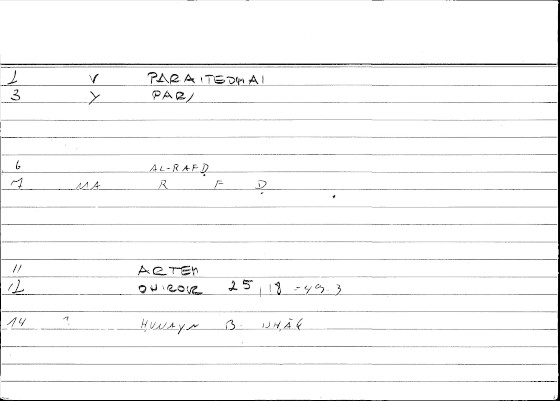 1 V PARAITEOMAI
3 Y PAR/
6 AL-RAFḌ
7 MA R F Ḍ
11 ARTEM
12 ONIROCR 25,18 - 49.3
14 HUNAYN B.